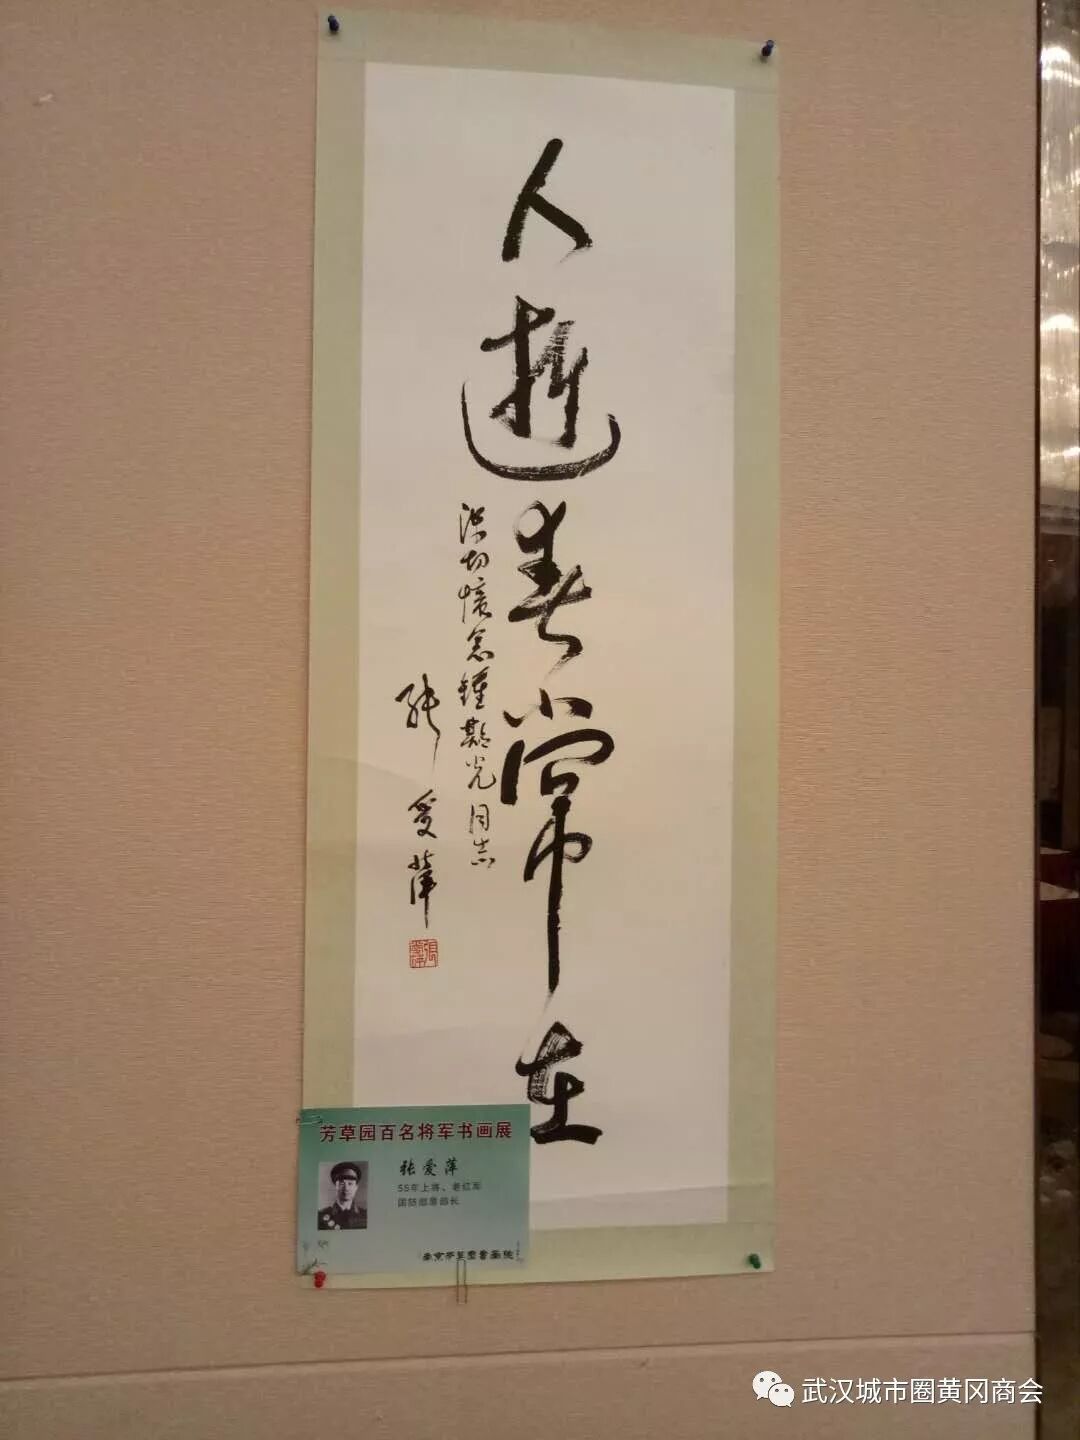 人逝春常在
深切怀念钟期光同志
张爱萍
芳草园百名将军书画展
张爱萍
55年上将、老红军
国防部原部长
南京芳草园书画院
武汉城市圈黄冈商会